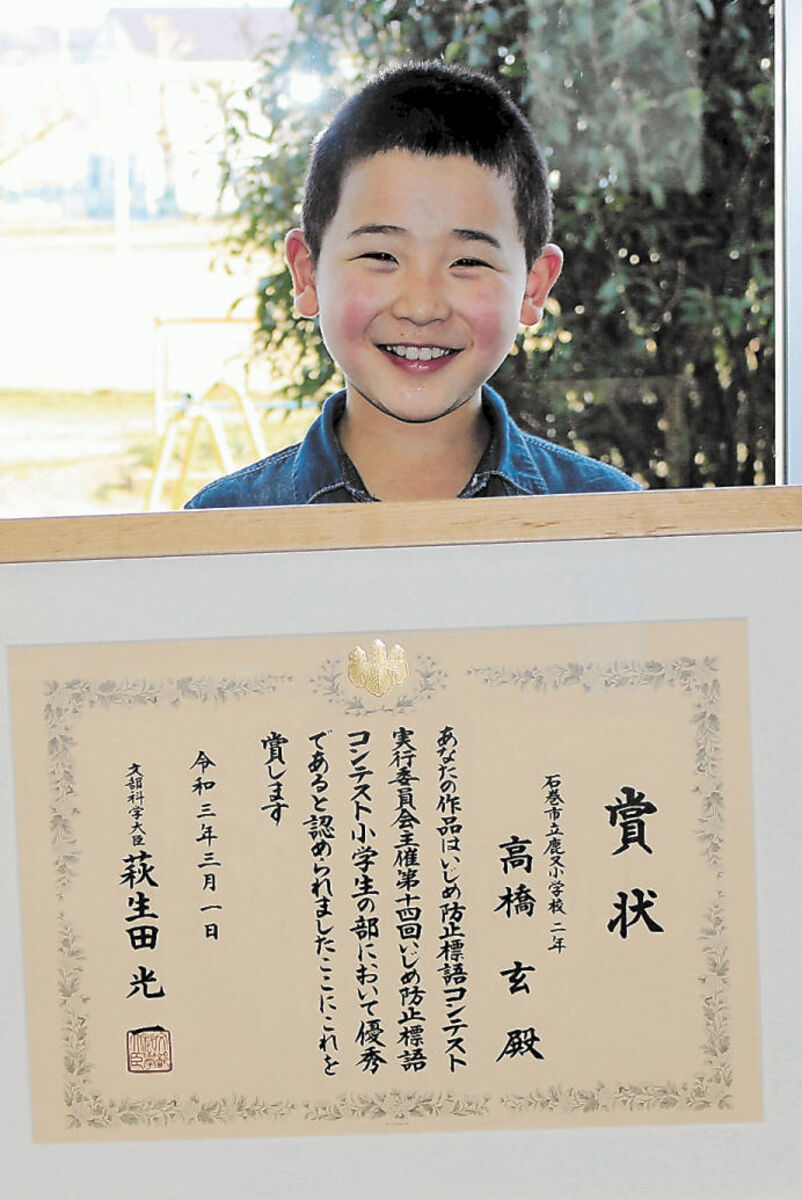 賞状
石巻市立鹿又小学校 二年
高橋 玄 殿
あなたの作品はいじめ防止標語コンテスト
実行委員会主催第十四回いじめ防止標語
コンテスト小学生の部において優秀
であると認められましたここにこれを
賞します
令和三年三月一日
文部科学大臣 萩生田光一